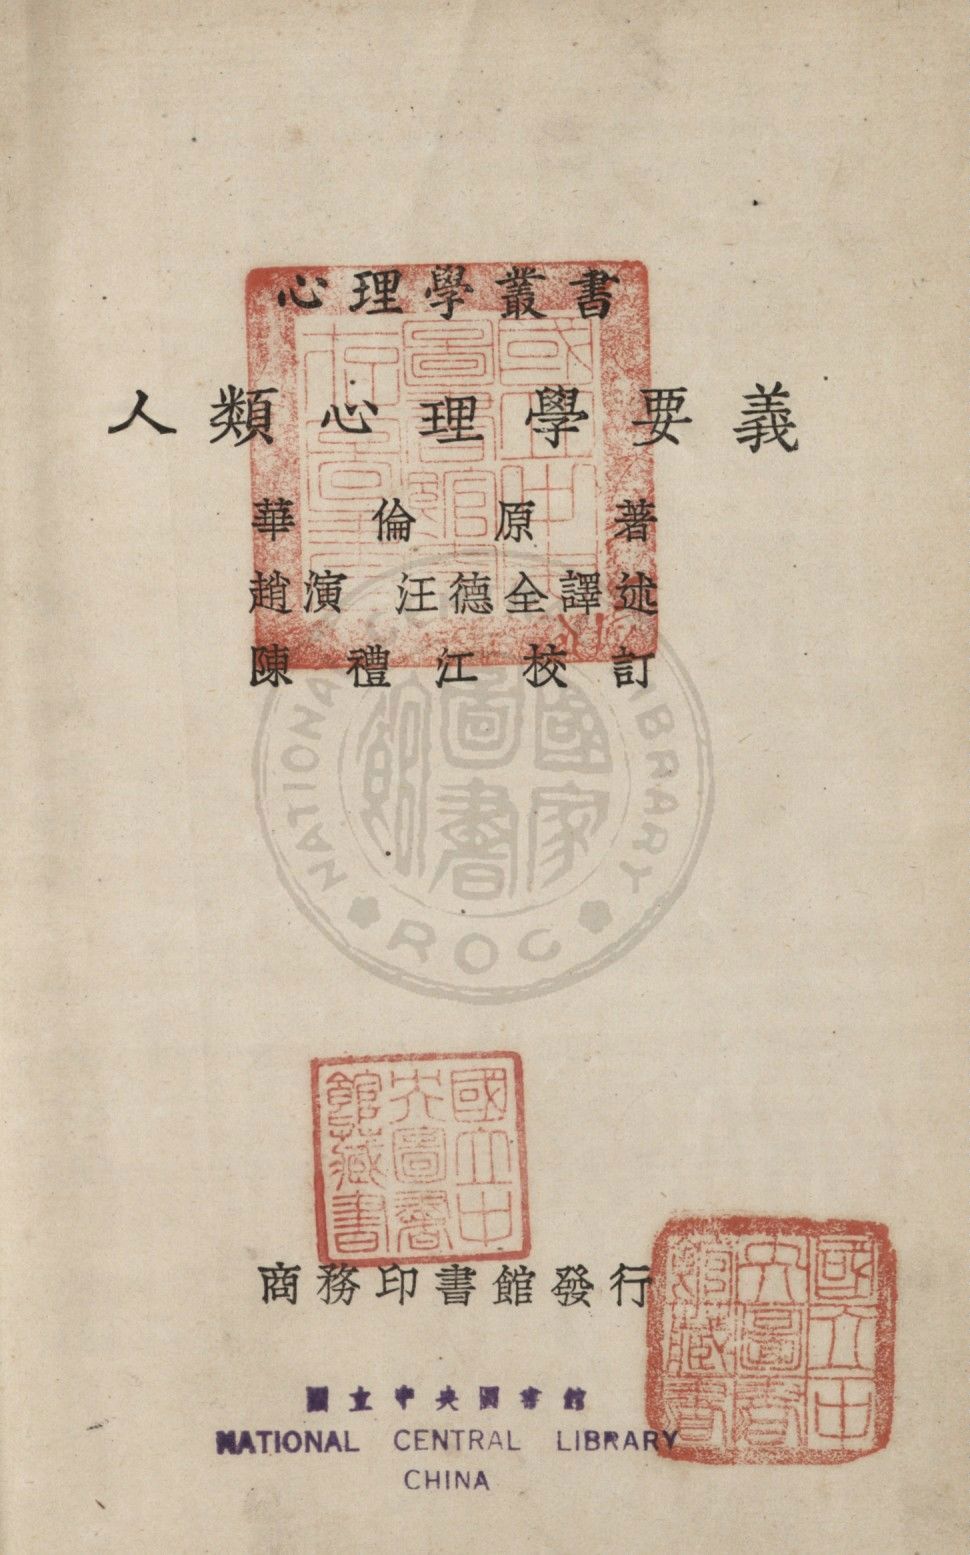 心理學叢書
人類心理學要義
華倫原著
趙演 汪德全譯述
陳禮江校訂
NATIONAL LIBRARY
國家圖書館
ROC
國立中央圖書館藏書
商務印書館發行
國立中央圖書館藏書
國立中央圖書館
NATIONAL CENTRAL LIBRARY
CHINA